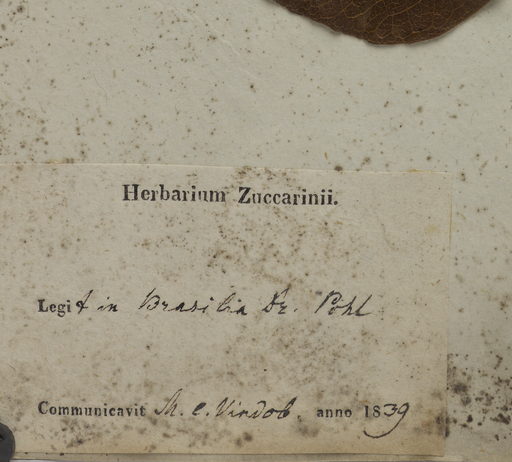 Herbarium Zuccarinii.
Legit in Brasilia Dr. Pohl
Communicavit M. C. Vindob. anno 1839